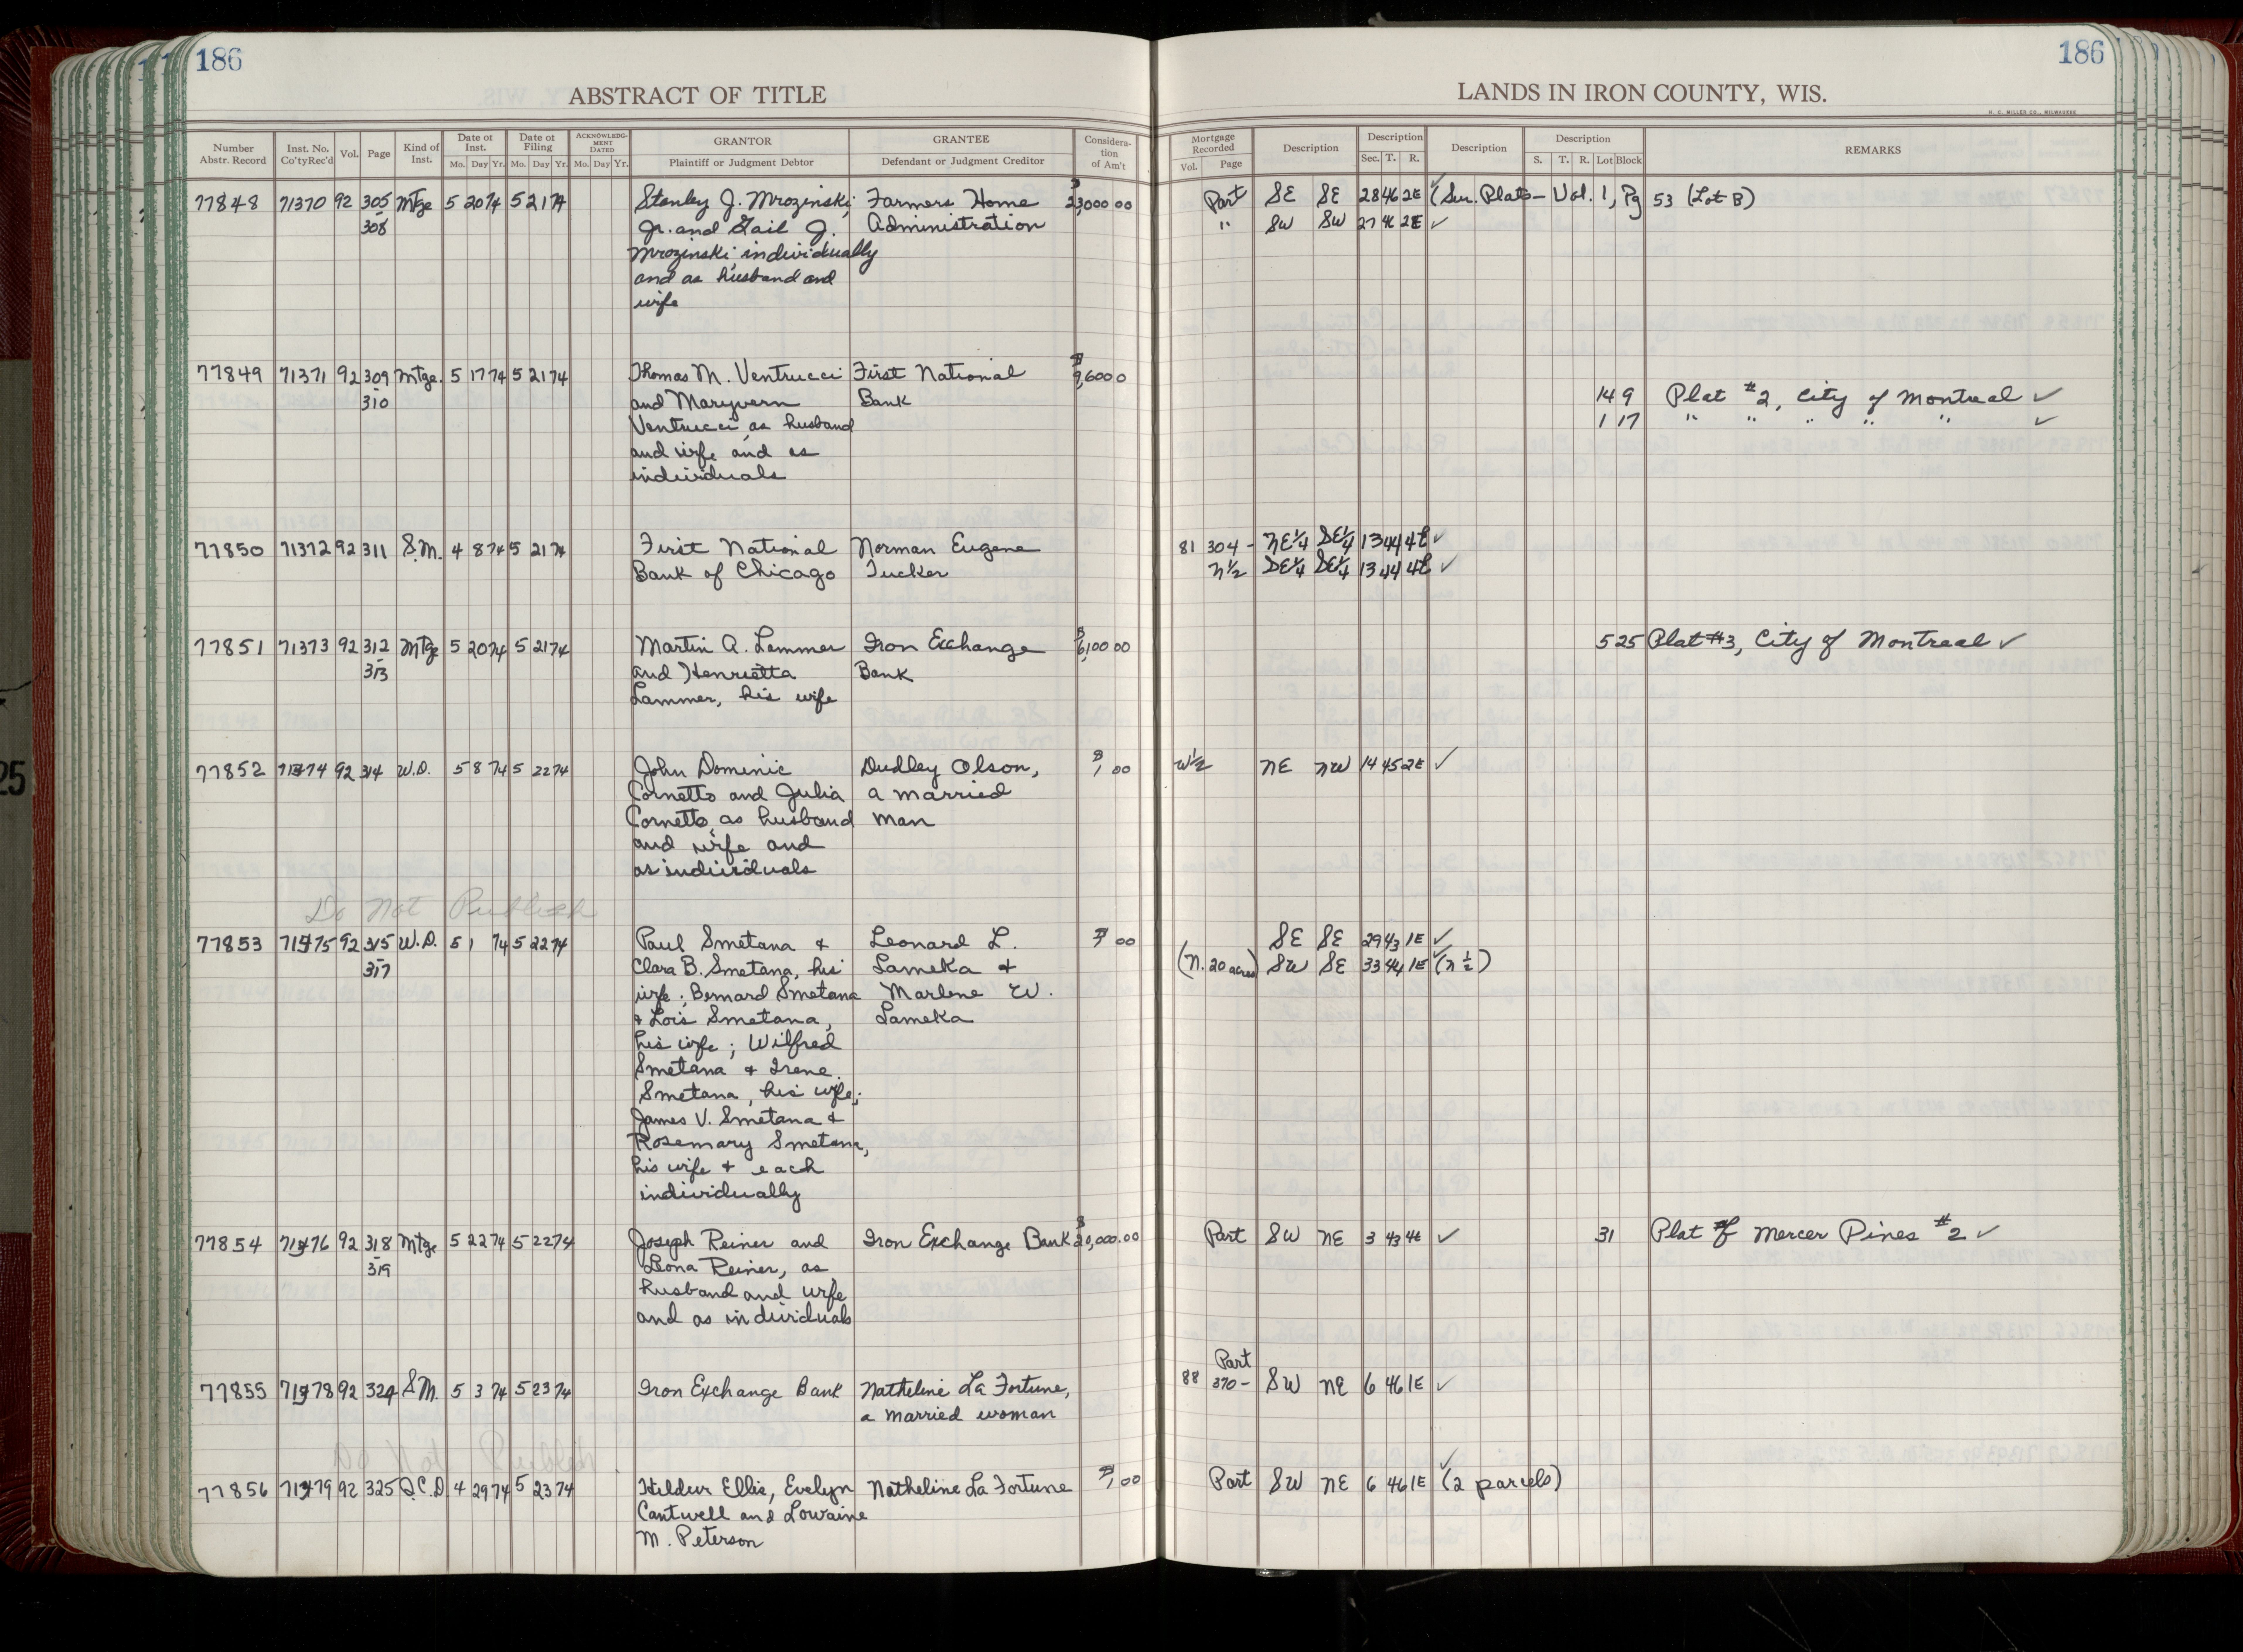 186
186
ABSTRACT OF TITLE
LANDS IN IRON COUNTY, WIS.
H. C. MILLER CO., MILWAUKEE
Number Abstr. Record
Inst. No. Co'tyRec'd
Vol.
Page
Kind of Inst.
Date of Inst.
Mo. Day Yr.
Date of Filing
Mo. Day Yr.
ACKNOWLEDGMENT DATED
Mo. Day Yr.
GRANTOR
Plaintiff or Judgment Debtor
GRANTEE
Defendant or Judgment Creditor
Consideration of Am't
Mortgage Recorded
Vol. Page
Description
Description
Sec. T. R.
Description
Description
S. T. R. Lot Block
REMARKS
77848 71370 92 305 Mtge 5 20 74 5 21 74 Stanley J. Mrozinski, Farmers Home $23,000 00 Part SE SE 28 46 2E ✓ (Sur. Plats - Vol. 1, Pg 53 (Lot B)
308 Jr. and Gail J. Administration " SW SW 27 46 2E ✓
Mrozinski, individually
and as husband and
wife
77849 71371 92 309 Mtge. 5 17 74 5 21 74 Thomas M. Ventrucci First National $9,600 0
310 and Maryvern Bank 14 9 Plat #2, City of Montreal ✓
Ventrucci, as husband 1 17 " " " " " ✓
and wife and as
individuals
77850 71372 92 311 S.M. 4 8 74 5 21 74 First National Norman Eugene 81 304 - NE¼ SE¼ 13 44 4E ✓
Bank of Chicago Tucker N½ SE¼ SE¼ 13 44 4E ✓
77851 71373 92 312 Mtge 5 20 74 5 21 74 Martin A. Lammer Iron Exchange $6,100 00 5 25 Plat #3, City of Montreal ✓
313 and Henrietta Bank
Lammer, his wife
77852 71374 92 314 W.D. 5 8 74 5 22 74 John Dominic Dudley Olson, $1 00 W½ NE NW 14 45 2E ✓
Cornetto and Julia a married
Cornetto, as husband man
and wife and
as individuals
Do Not Publish
77853 71375 92 315 W.D. 5 1 74 5 22 74 Paul Smetana & Leonard L. $1 00 SE SE 29 43 1E ✓
317 Clara B. Smetana, his Lameka & (N. 20 acres) SW SE 33 44 1E ✓ (N ½)
wife; Bernard Smetana Marlene W.
& Lois Smetana, Lameka
his wife; Wilfred
Smetana & Irene
Smetana, his wife;
James V. Smetana &
Rosemary Smetana,
his wife & each
individually
77854 71376 92 318 Mtge 5 22 74 5 22 74 Joseph Reiner and Iron Exchange Bank $20,000.00 Part SW NE 3 43 4E ✓ 31 Plat of Mercer Pines #2 ✓
319 Leona Reiner, as
husband and wife
and as individuals
Part
77855 71378 92 324 S.M. 5 3 74 5 23 74 Iron Exchange Bank Natheline La Fortune, 88 370 - SW NE 6 46 1E ✓
a married woman
Do Not Publish
77856 71379 92 325 Q.C.D. 4 29 74 5 23 74 Hildur Ellis, Evelyn Natheline La Fortune $1,00 Part SW NE 6 46 1E ✓ (2 parcels)
Cantwell and Lorraine
M. Peterson
25